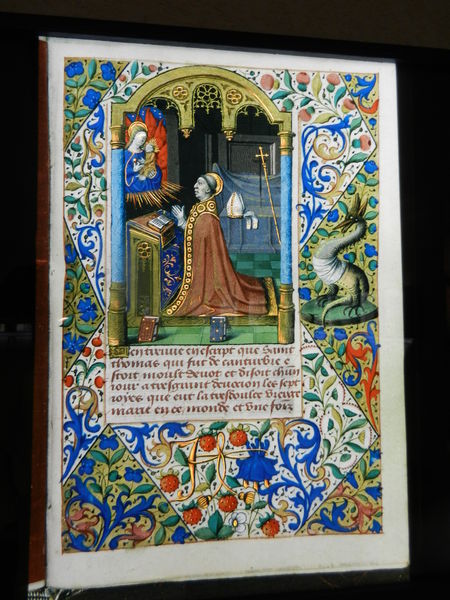 On treuue en escript que Saint
thomas qui fut de canturbie e
stoit moult deuot et disoit chun
iour a tresgrant deuocion les sept
ioyes que eut la tresdoulce vierge
marie en ce monde et vne foiz